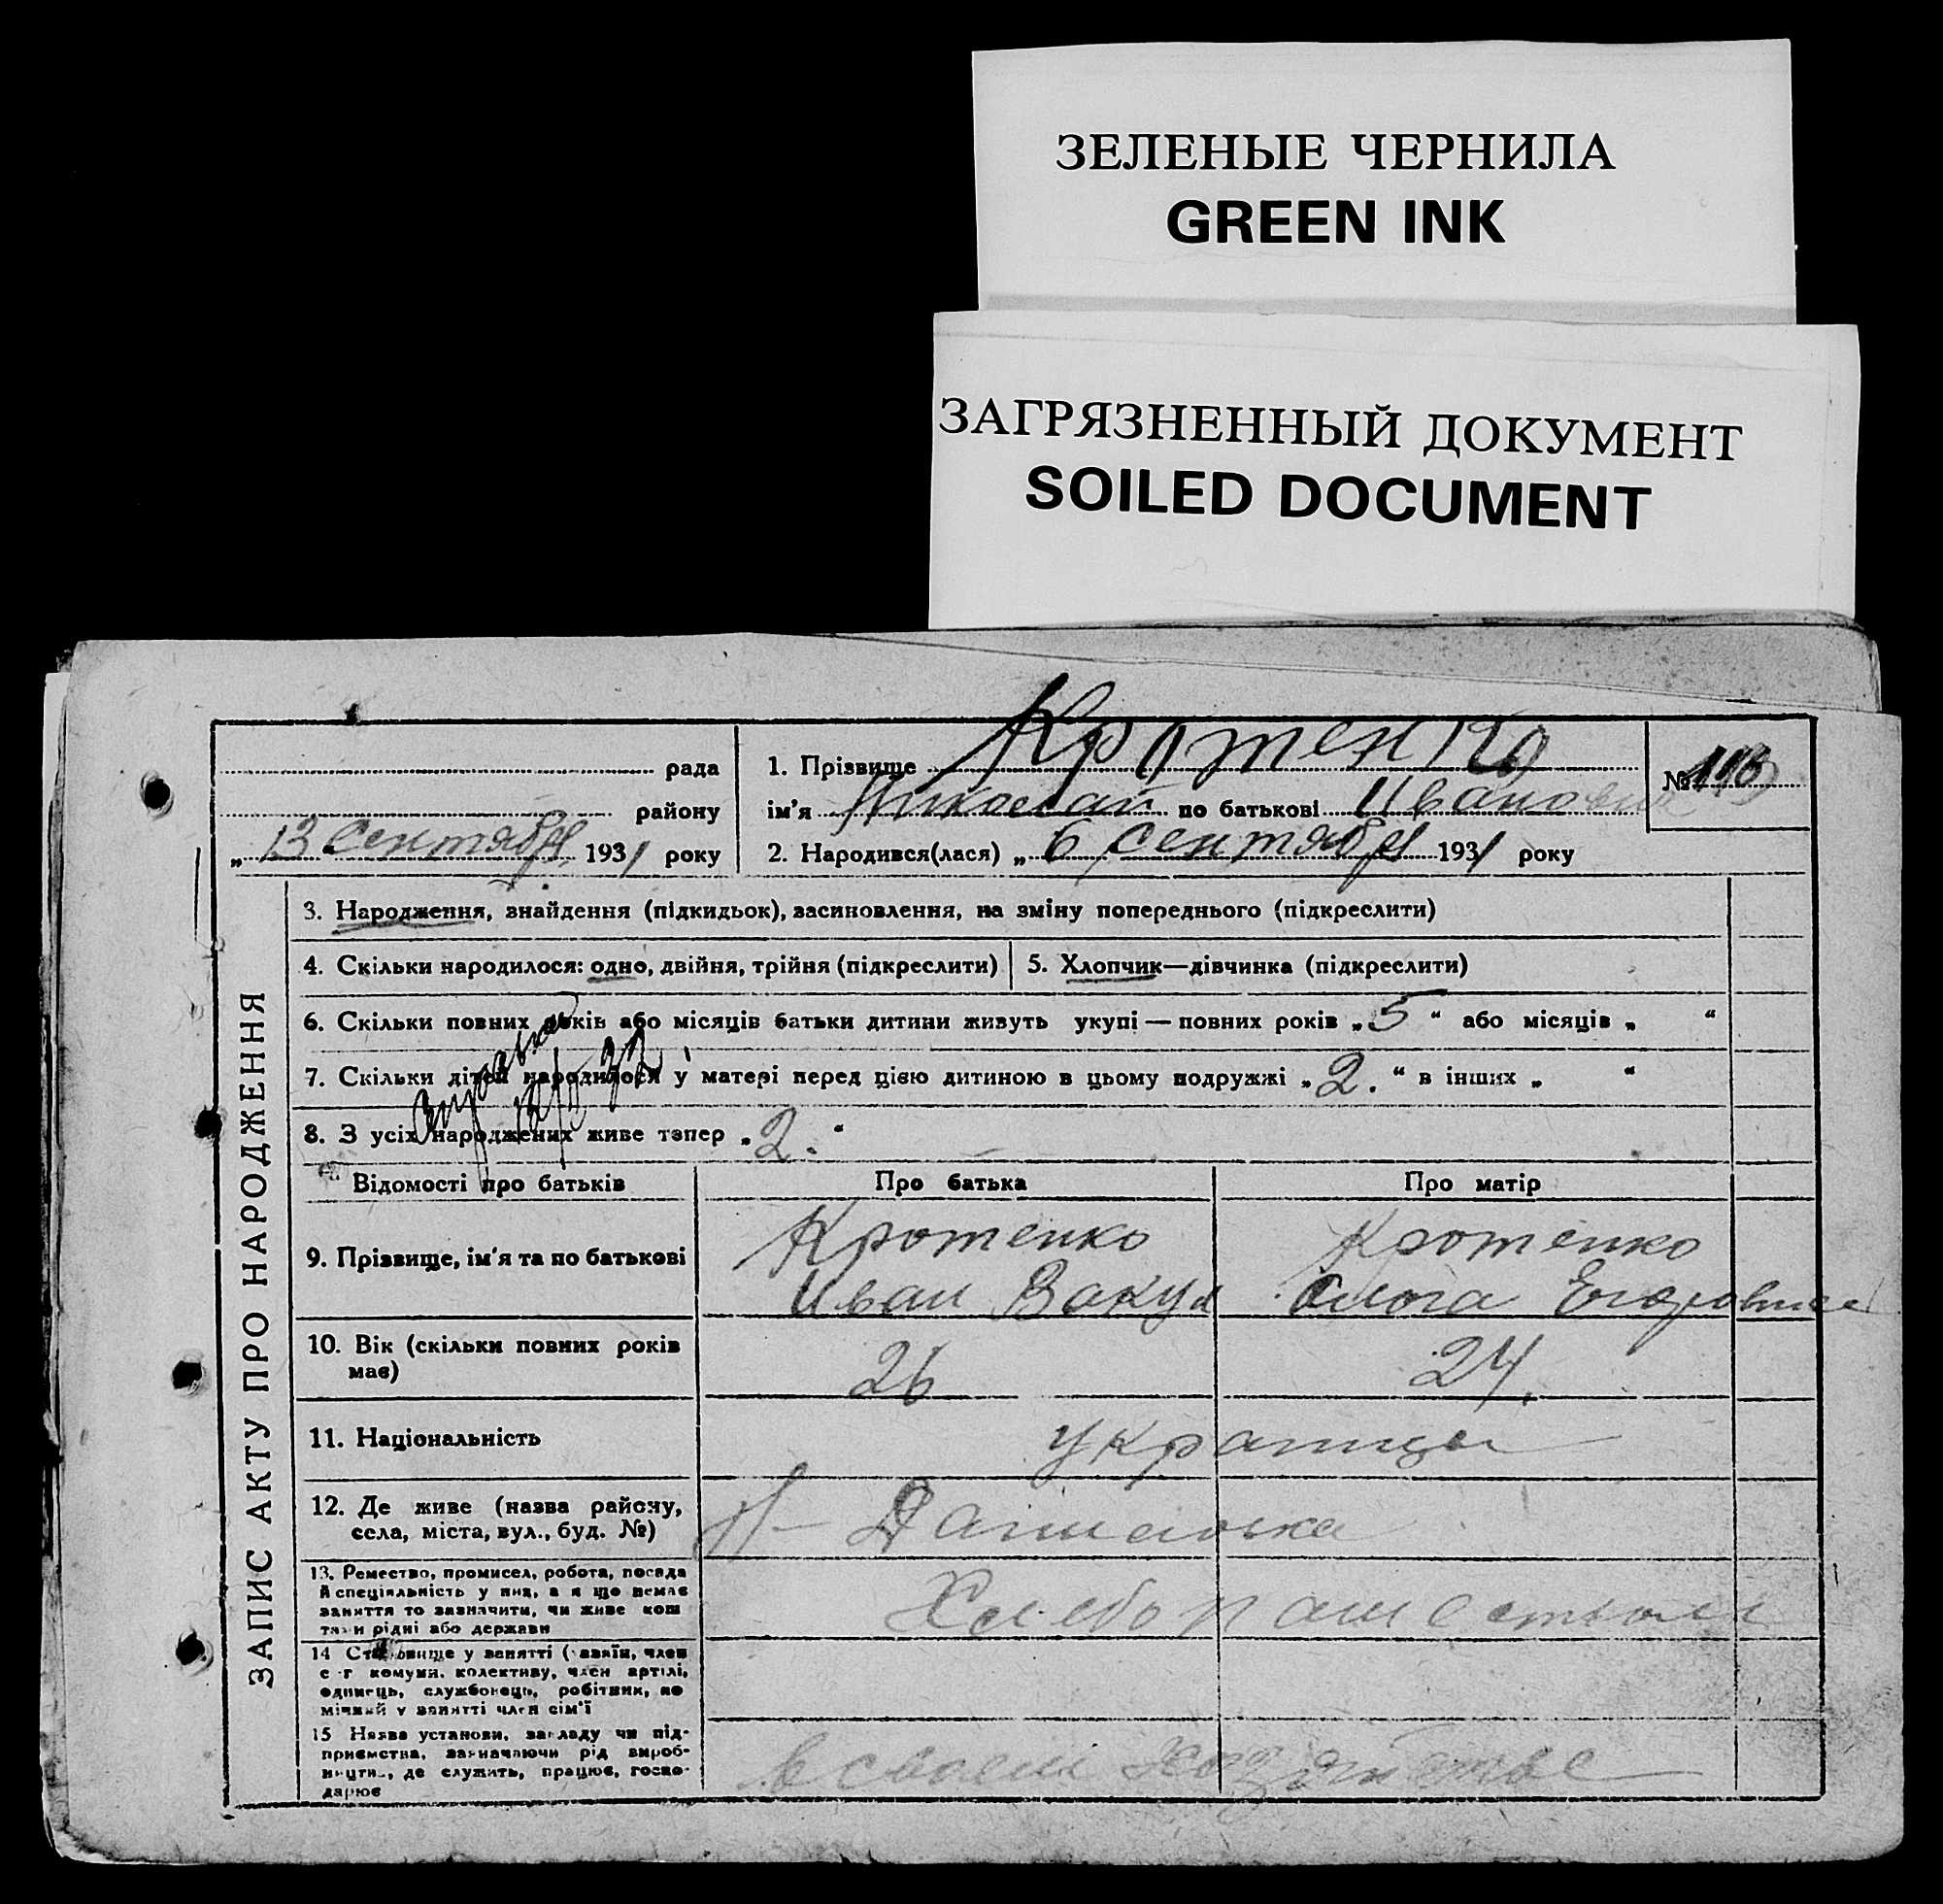 ЗЕЛЕНЫЕ ЧЕРНИЛА
GREEN INK
ЗАГРЯЗНЕННЫЙ ДОКУМЕНТ
SOILED DOCUMENT
рада
району
„13 сентября 1931 року
1. Прізвище Кротенко
ім'я Николай по батькові Иванович
2. Народився(лася) „6 сентября 1931 року
№
ЗАПИС АКТУ ПРО НАРОДЖЕННЯ
3. Народження, знайдення (підкидьок), засиновлення, на зміну попереднього (підкреслити)
4. Скільки народилося: одно, двійня, трійня (підкреслити)
5. Хлопчик—дівчинка (підкреслити)
6. Скільки повних років або місяців батьки дитини живуть укупі — повних років „5“ або місяців „ “
7. Скільки дітей народилося у матері перед цією дитиною в цьому подружжі „2.“ в інших „ “
8. З усіх народжених живе тепер „2.“
Відомості про батьків Про батька Про матір
9. Прізвище, ім'я та по батькові
Кротенко
Иван Вакул
Кротенко
Ольга Егоровна
10. Вік (скільки повних років має)
26
24.
11. Національність
украинцы
12. Де живе (назва району,
села, міста, вул., буд. №)
13. Ремество, промисел, робота, посада
й спеціяльність у них, а я що немає
заняття то зазначити, чи живе кош
тами рідні або держави
Хлебопашество
14 Становище у занятті (хазяїн, член
с-г комуни, колективу, член артілі,
одинець, службовець, робітник, по
мічний у занятті член сім'ї
15 Назва установи, закладу чи під-
приємства, зазначаючи рід вироб-
ництва, де служить, працює, госпо-
дарює
в своем хозяйстве